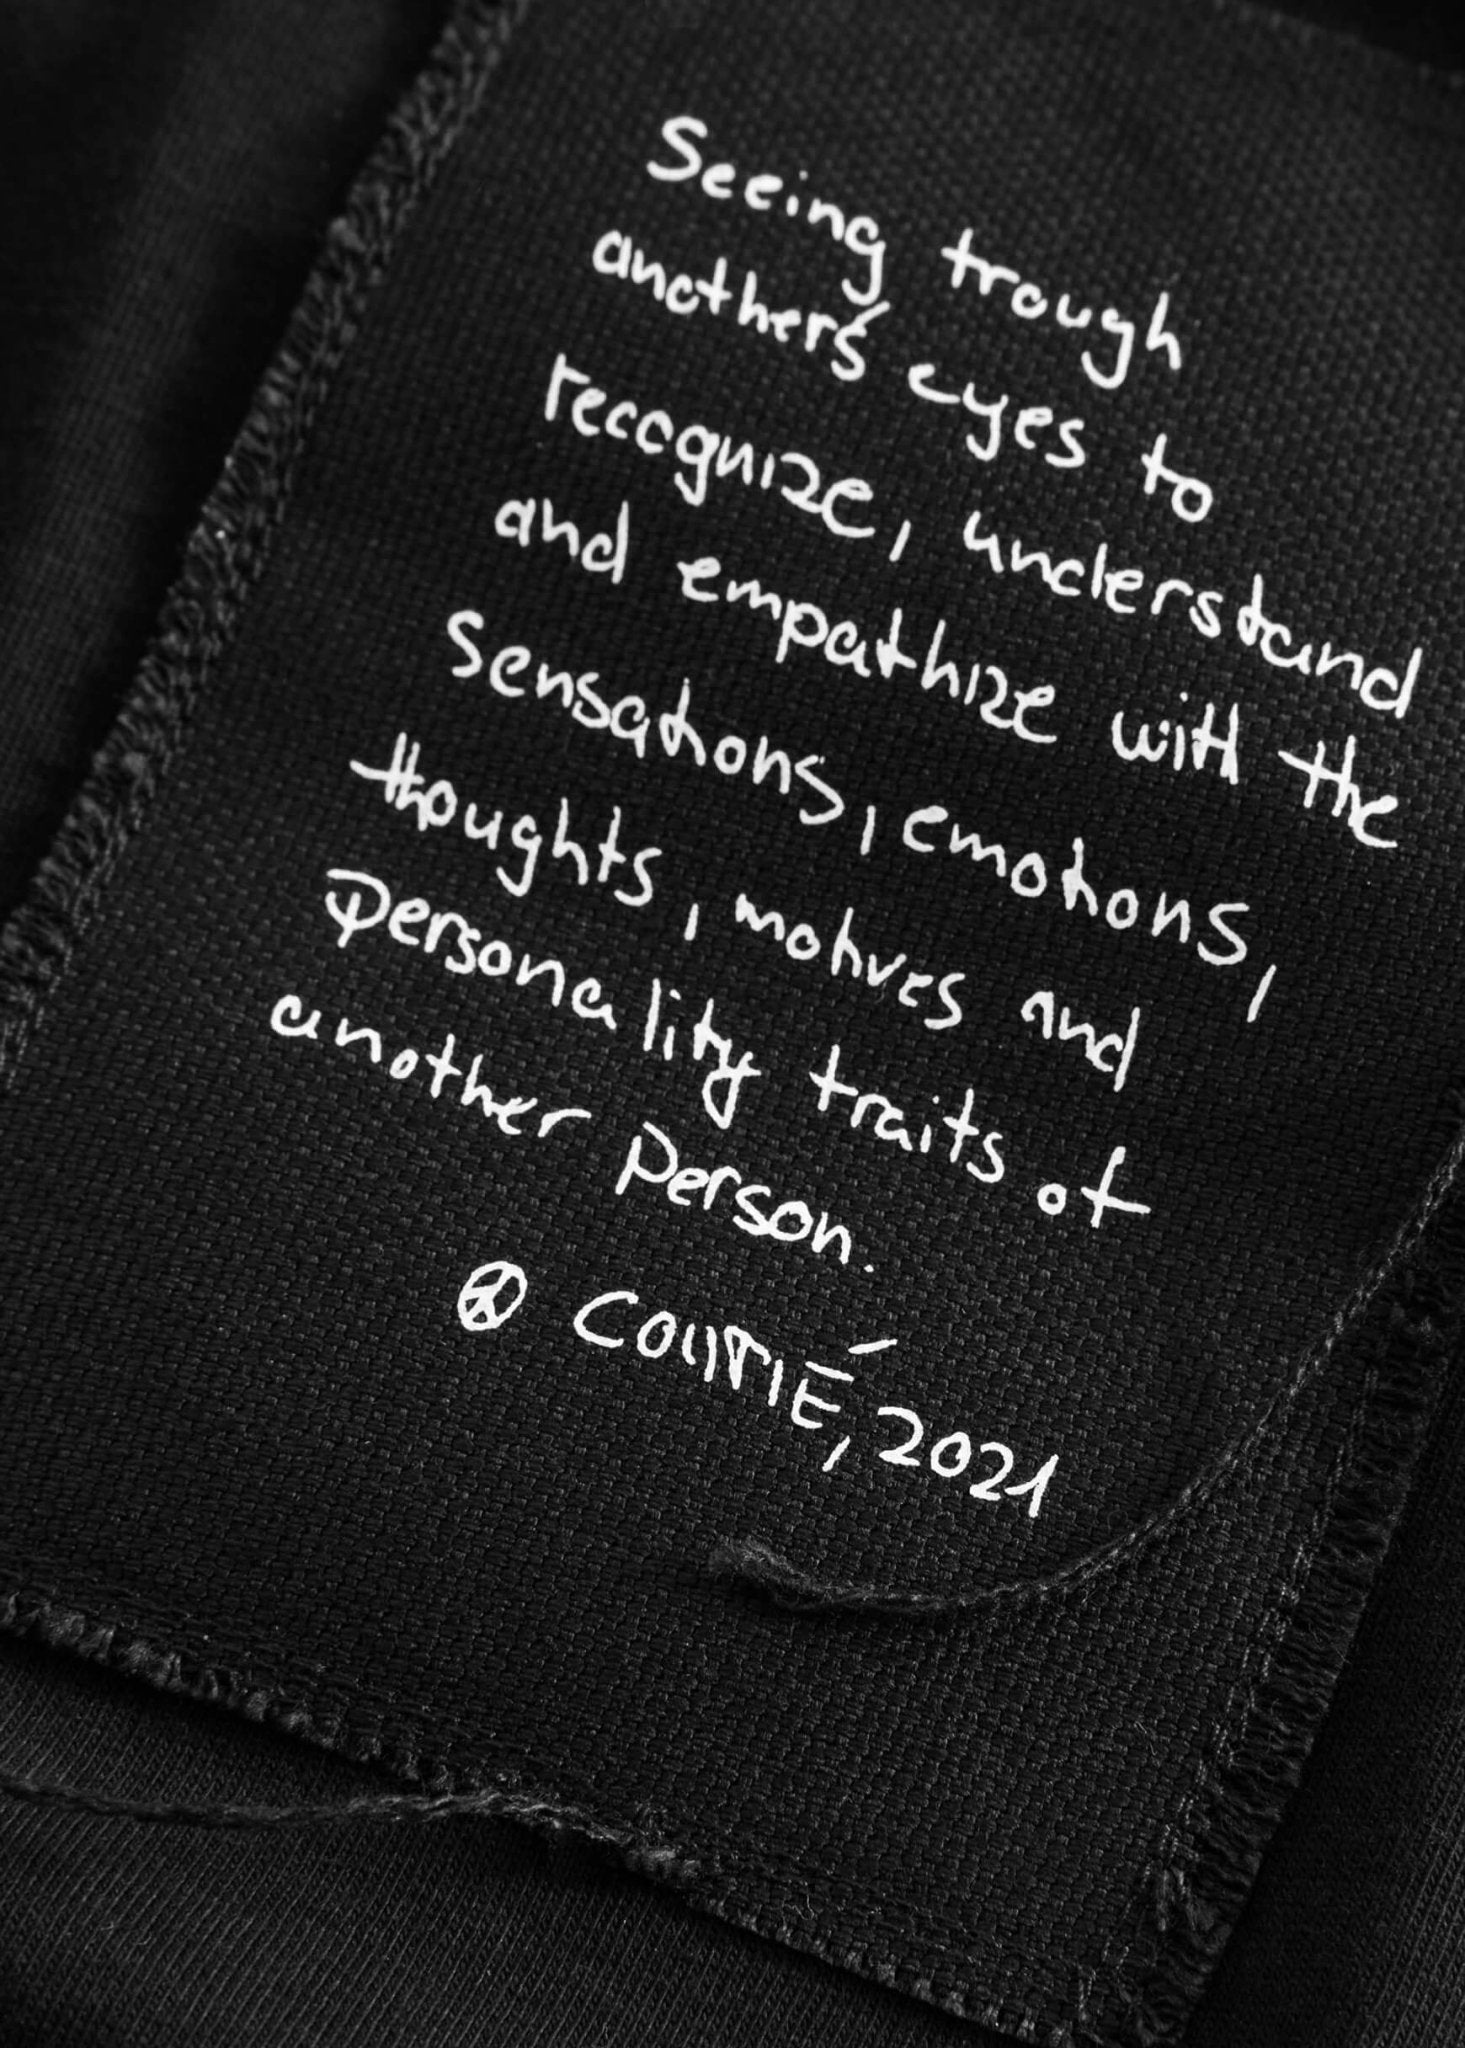 Seeing trough
another's eyes to
recognize, understand
and empathize with the
sensations, emotions,
thoughts, motives and
personality traits of
another person.
☮ COUTIÉ, 2021